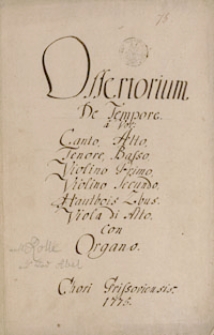 75
Offertorium.
De Tempore.
à Voc:
Canto, Alto,
Tenore, Basso,
Violino Primo,
Violino Secundo,
Hautbois 2bus.
Viola di Alto.
con
Organo.
Chori Grissoviensis.
1775.